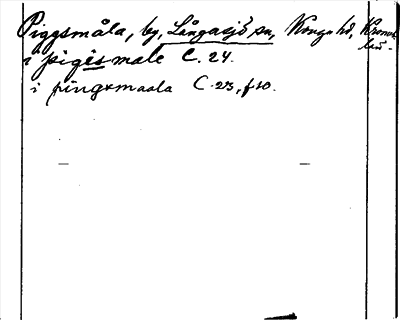 Piggsmåla, by, Långasjö sn, Konga hd, Kronob. län.
i pigesmale C. 24.
i pingxmaala C. 23, f 10.